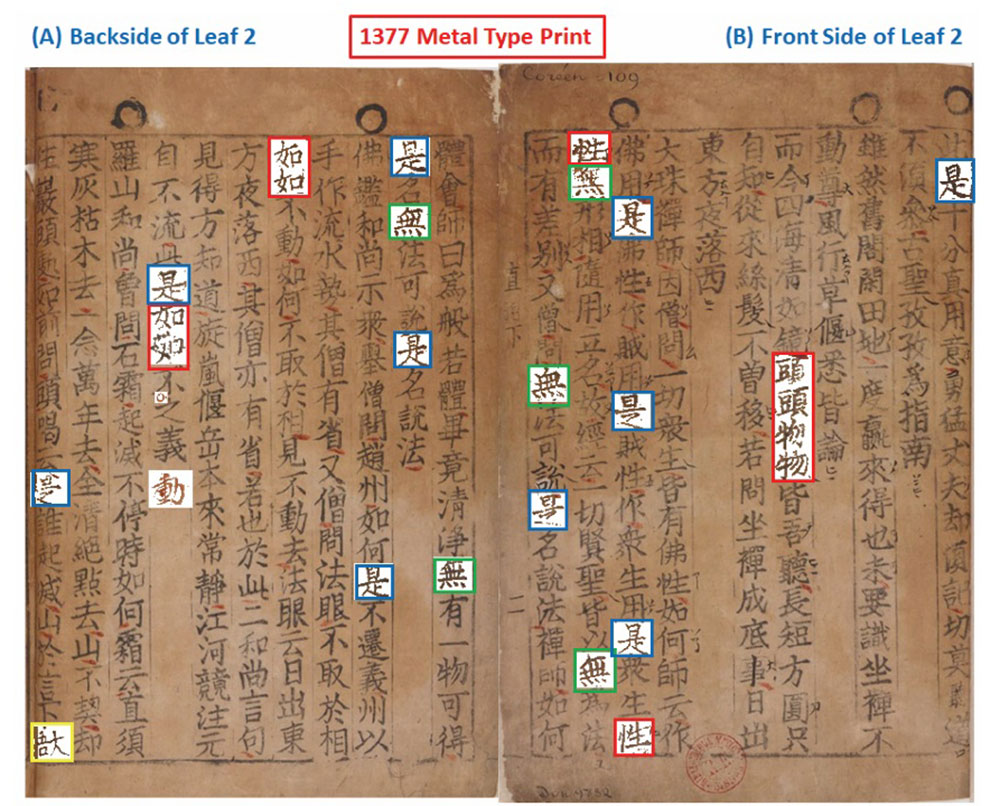 (A) Backside of Leaf 2
1377 Metal Type Print
(B) Front Side of Leaf 2
Coréen 109
是十分真用意勇猛丈夫却須記切莫
不須參古聖孜孜爲指南
雖然書閣閑田地一度贏來得也未要識坐禪不
動尊風行草偃悉皆論
而今四海清如鏡頭頭物物皆吾聽長短方圓只
自知從來絲髮不曾移若問坐禪成底事日出
東方夜落西
大珠禪師因僧問一切衆生皆有佛性如何師云作
佛用是佛性作賊用是賊性作衆生用是衆生性
性無形相隨用立名故經云一切賢聖皆以無爲法
而有差別又僧問無法可說是名說法禪師如何
體會師曰爲般若體畢竟清淨無有一物可得
是名無法可說是名說法
佛鑑和尚示衆擧僧問趙州如何是不遷義州以
手作流水勢其僧有省又僧問法眼不取於相
如如不動如何不取於相見不動去法眼云日出東
方夜落西其僧亦有省若也於此二和尚言句
見得方知道旋嵐偃岳本來常靜江河競注元
自不流是如如不之義動
羅山和尚曾問石霜起滅不停時如何霜云直須
寒灰枯木去一念萬年去至清絶點去山不契却
往巖頭處如前問頭喝云是誰起滅山於言下大悟